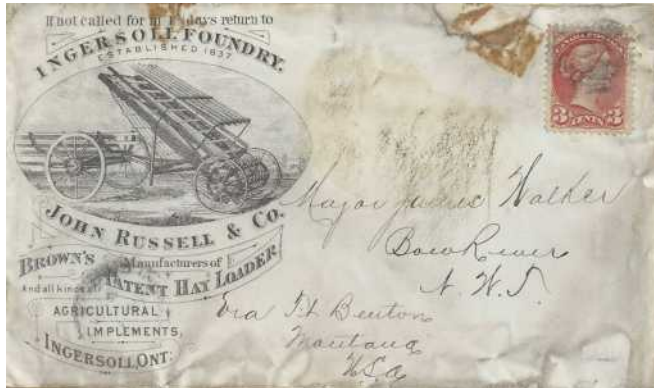 If not called for in 15 days return to
INGERSOLL FOUNDRY.
ESTABLISHED 1837
JOHN RUSSELL & Co.
Manufacturers of
BROWN'S PATENT HAY LOADER
And all kinds of
AGRICULTURAL
IMPLEMENTS,
INGERSOLL, ONT.
CANADA POSTAGE
3 CENTS 3
Major James Walker
Bow River
N. W. T.
Via Ft Benton
Montana
USA